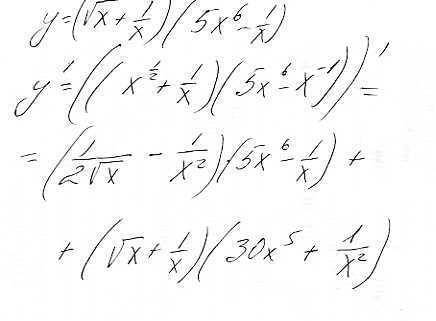 y=(√x+1/x)(5x⁶-1/x)
y'=((x^(1/2)+1/x)(5x⁶-x⁻¹))'=
=(1/(2√x)-1/x²)·(5x⁶-1/x)+
+(√x+1/x)(30x⁵+1/x²)